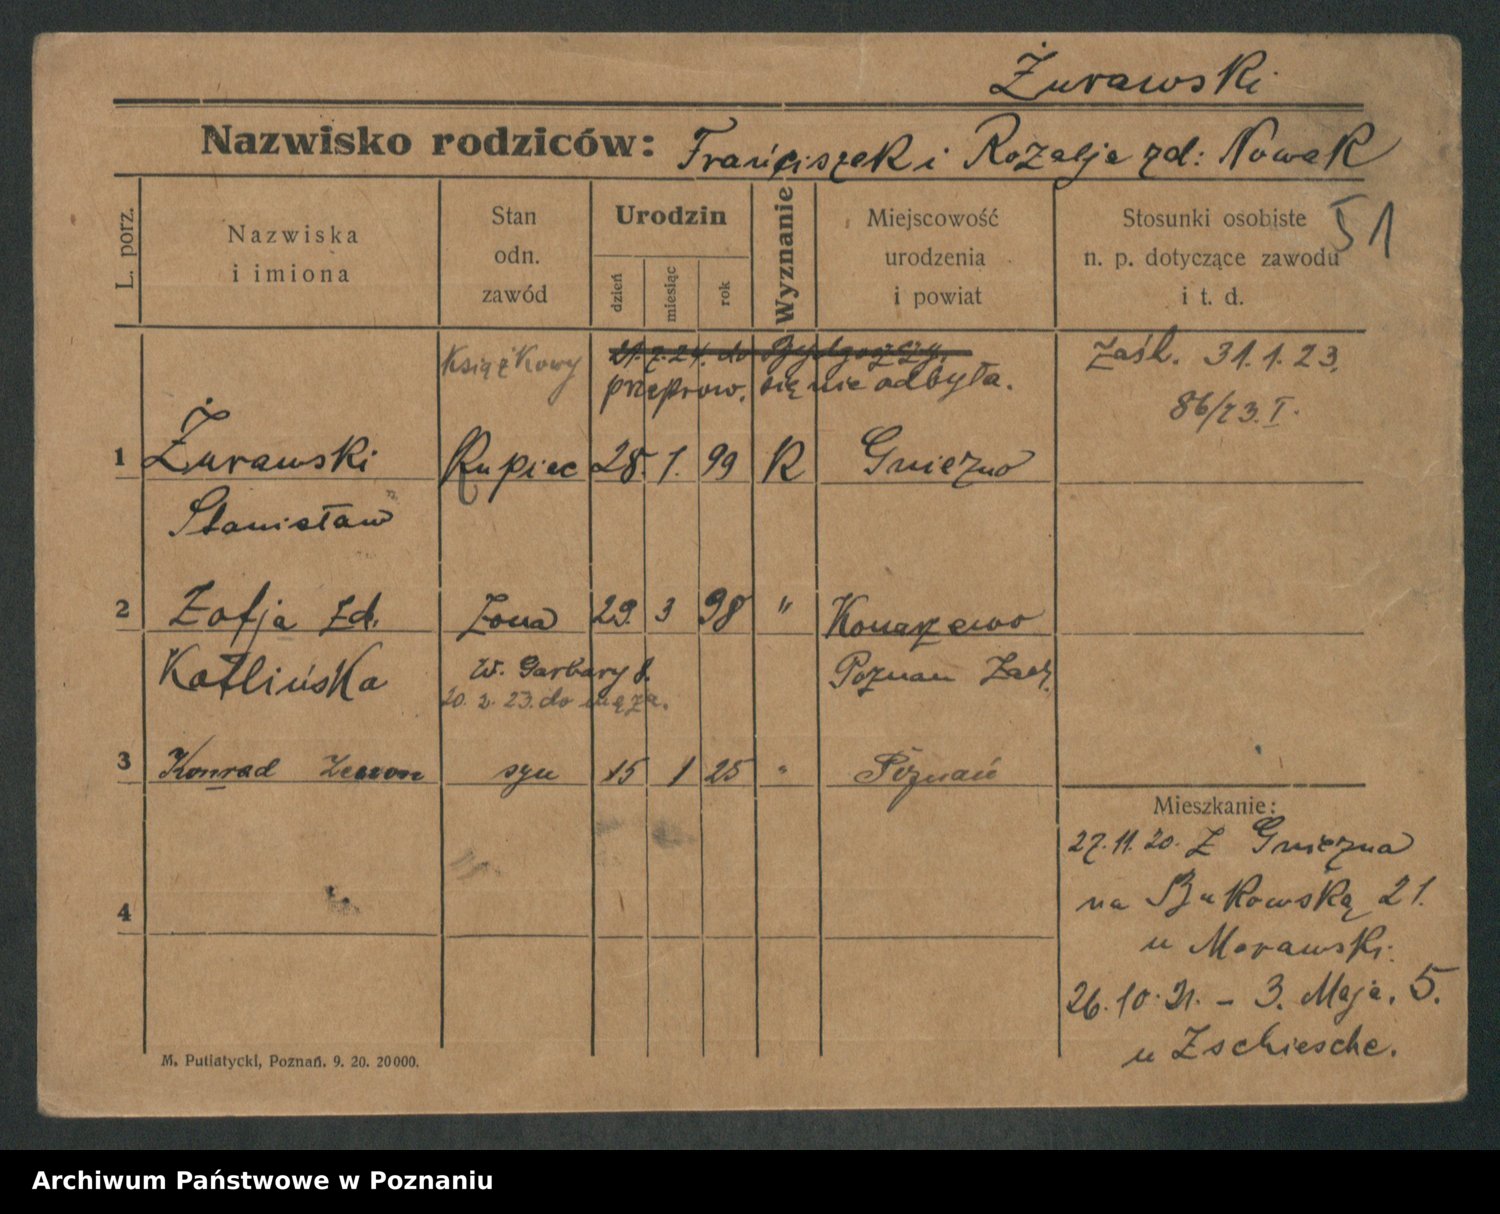 Żurawski
Nazwisko rodziców: Franciszek i Rozalja zd: Nowak
51
L. porz.
Nazwiska
i imiona
Stan
odn.
zawód
Urodzin
dzień
miesiąc
rok
Wyznanie
Miejscowość
urodzenia
i powiat
Stosunki osobiste
n. p. dotyczące zawodu
i t. d.
21.7.24. do Bydgoszczy.
przeprow. się nie odbyła.
Zaśl. 31.1.23.
86/23.I.
książkowy
1 Żurawski Kupiec 28. 1. 99 K Gniezno
Stanisław
2 Zofja zd. Żona 29. 3 98 " Konarzewo
Katlińska W. Garbary 8. Poznań Zach.
20. 2. 23. do męża.
3 Konrad Zenon syn 15 1 25 " Poznań
4
Mieszkanie:
27.11.20. Z Gniezna
na Bukowską 21.
u Morawski.
26.10.21. – 3. Maja. 5.
u Zschiesche.
M. Putiatycki, Poznań. 9. 20. 20000.
Archiwum Państwowe w Poznaniu